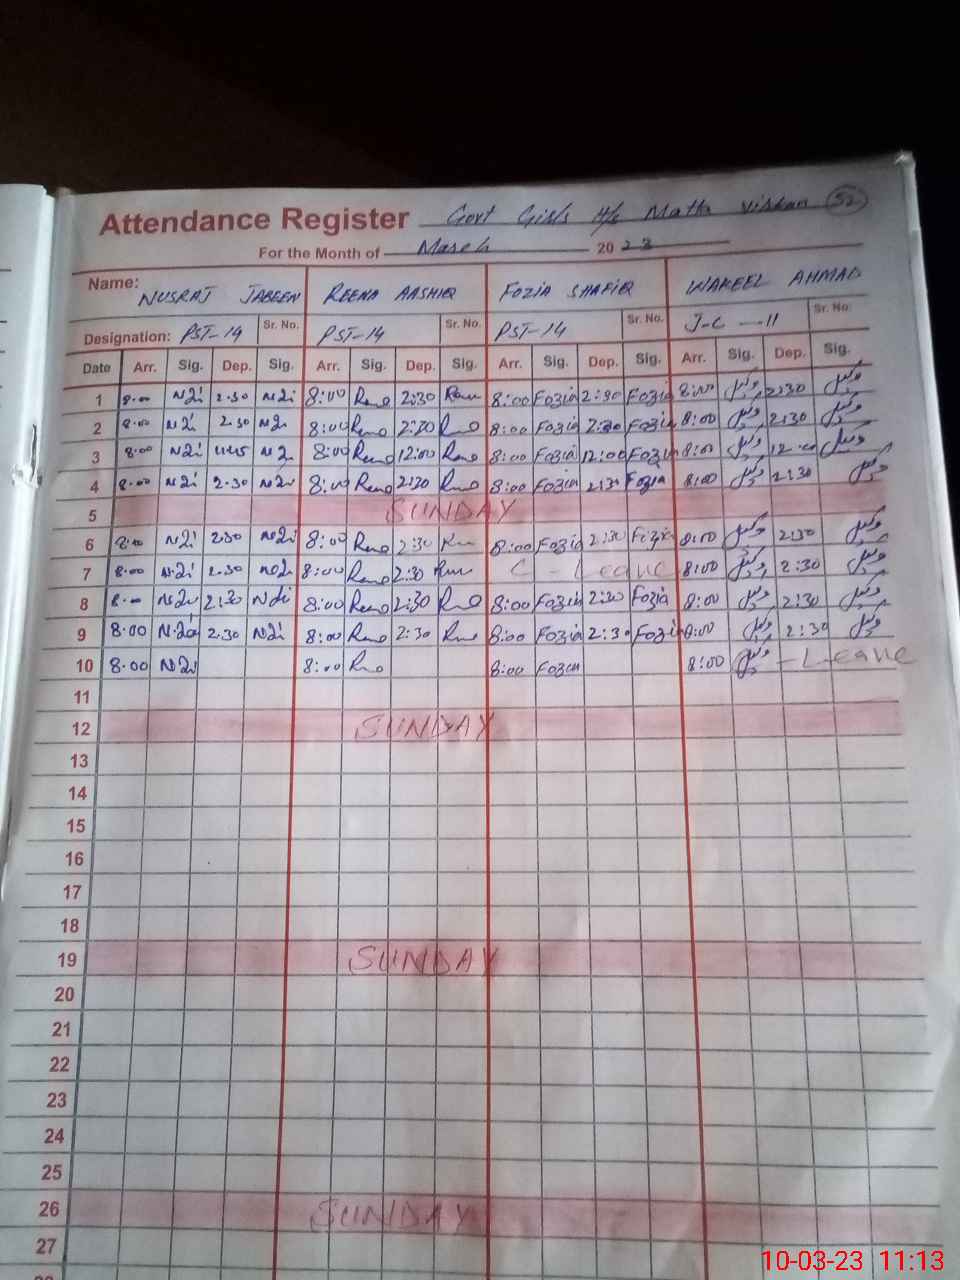 Attendance Register Govt Girls H/S Math Viskan 52
For the Month of March 2023
Name: NUSRAT JABEEN REENA AASHIQ FOZIA SHAFIQ WAKEEL AHMAD
Designation: PST-14 Sr. No. PST-14 Sr. No. PST-14 Sr. No. J-C -11 Sr. No:
Date Arr. Sig. Dep. Sig. Arr. Sig. Dep. Sig. Arr. Sig. Dep. Sig. Arr. Sig. Dep. Sig.
1 8.00 2.30 8:00 2:30 8:00 Fozia 2:30 Fozia 8:00 وکیل 2:30 وکیل
2 8.00 2.30 8:00 2:30 8:00 Fozia 2:30 Fozia 8:00 وکیل 2:30 وکیل
3 8.00 8:00 12:00 8:00 Fozia 12:00 Fozia 8:00 وکیل 12:00 وکیل
4 8.00 2.30 8:00 2:30 8:00 Fozia 2:30 Fozia 8:00 وکیل 2:30 وکیل
5 SUNDAY
6 8.00 2.30 8:00 2:30 8:00 Fozia 2:30 Fozia 8:00 وکیل 2:30 وکیل
7 8.00 2.30 8:00 2:30 C - Leave 8:00 وکیل 2:30 وکیل
8 8.00 2:30 8:00 2:30 8:00 Fozia 2:30 Fozia 8:00 وکیل 2:30 وکیل
9 8.00 2.30 8:00 2:30 8:00 Fozia 2:30 Fozia 8:00 وکیل 2:30 وکیل
10 8.00 8:00 8:00 Fozia 8:00 وکیل - Leave
11
12 SUNDAY
13
14
15
16
17
18
19 SUNDAY
20
21
22
23
24
25
26 SUNDAY
27
10-03-23 11:13